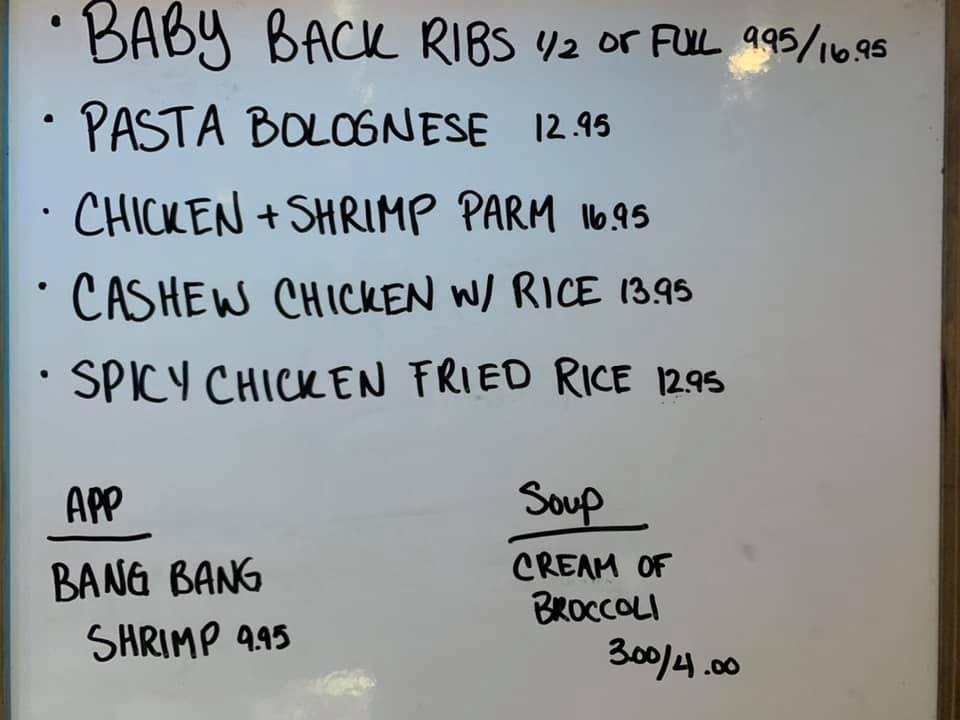 • BABY BACK RIBS 1/2 or FULL 9.95/16.95
• PASTA BOLOGNESE 12.95
• CHICKEN + SHRIMP PARM 16.95
• CASHEW CHICKEN W/ RICE 13.95
• SPICY CHICKEN FRIED RICE 12.95
APP
BANG BANG
SHRIMP 9.95
Soup
CREAM OF
BROCCOLI
3.00/4.00